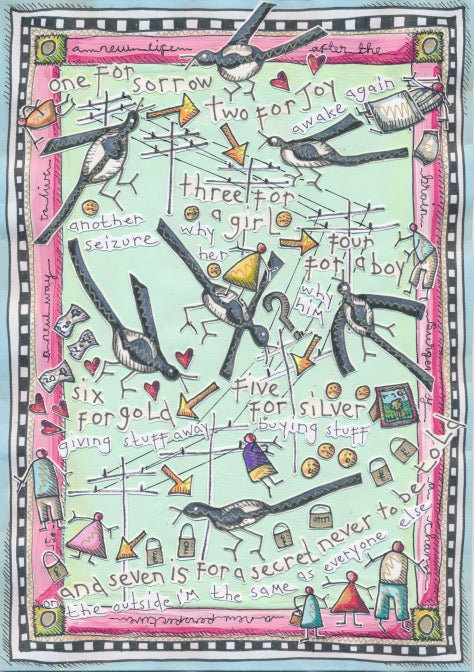 a new life
after the
one for
sorrow
two for joy
awake again
three for
a girl
another
seizure
why
her
four
for a boy
why
him
brain
surgery
a new way
to live
six
for gold
giving stuff away
five
for silver
buying stuff
and seven is for a secret never to be told
on the outside I'm the same as everyone else
a new perspective